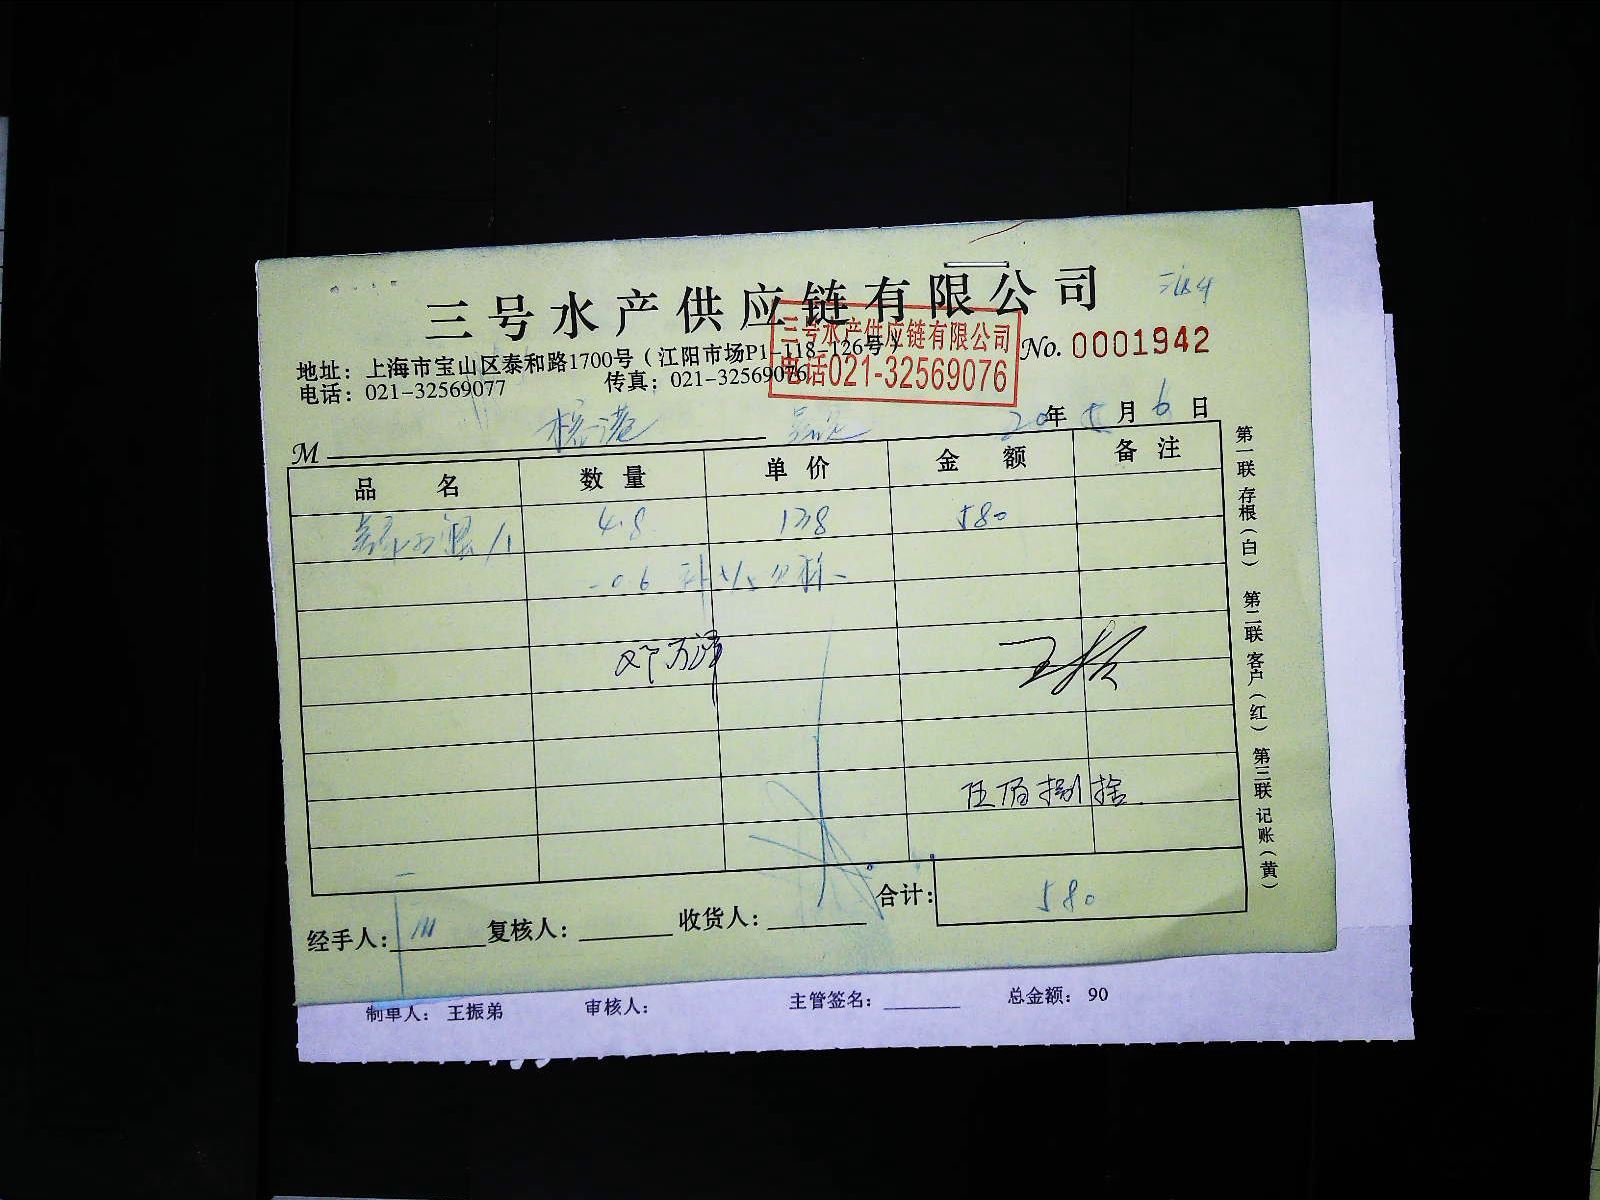 三号水产供应链有限公司
三号水产供应链有限公司
电话021-32569076
No. 0001942
地址：上海市宝山区泰和路1700号（江阳市场P1-118-126号）
电话：021-32569077 传真：021-32569076
M 20年 月6日
品名 数量 单价 金额 备注
4.8 138 580
-0.6
伍佰捌拾
合计：580
经手人： 复核人： 收货人：
第一联 存根（白） 第二联 客户（红） 第三联 记账（黄）
制单人：王振弟 审核人： 主管签名： 总金额：90